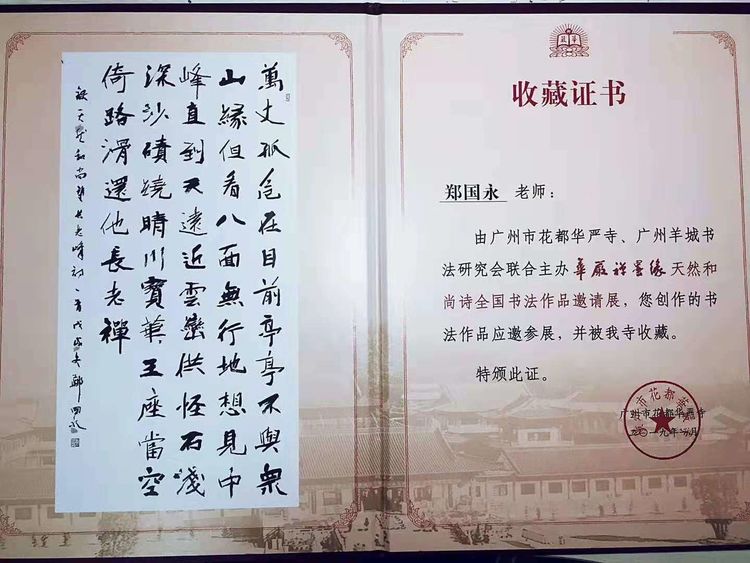 萬丈孤危在目前亭亭不與衆
山緣但看八面無行地想見中
峰直到天遠近雲巒供怪石淺
深沙磧繞晴川寶華王座當空
倚路滑還他長老禪
天然和尚望長老峰詩一首戊戌冬鄭國永
收藏证书
郑国永 老师：
由广州市花都华严寺、广州羊城书
法研究会联合主办華嚴禅墨缘天然和
尚诗全国书法作品邀请展，您创作的书
法作品应邀参展，并被我寺收藏。
特颁此证。
广州市花都华严寺
二〇一九年 月